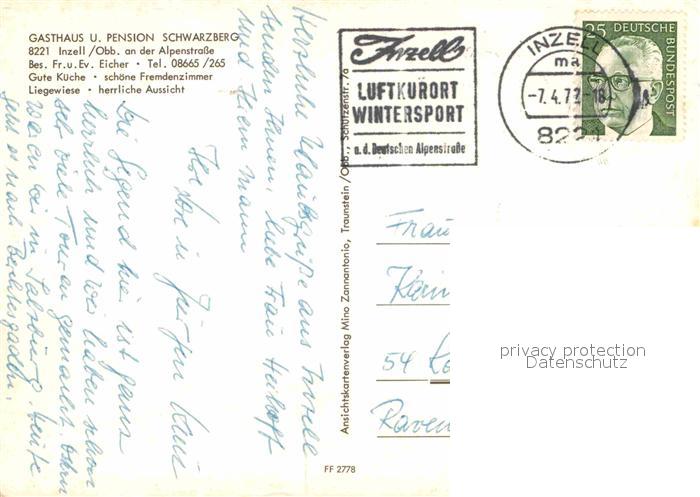 GASTHAUS U. PENSION SCHWARZBERG
8221 Inzell/Obb. an der Alpenstraße
Bes. Fr. u. Ev. Eicher • Tel. 08665/265
Gute Küche • schöne Fremdenzimmer
Liegewiese • herrliche Aussicht
Inzell
LUFTKURORT
WINTERSPORT
a. d. Deutschen Alpenstraße
INZELL
ma
-7.4.77-18
8221
25
DEUTSCHE BUNDESPOST
Herzliche Urlaubsgrüße aus Inzell
senden Ihnen, liebe Frau
und Ihrem Mann
Ihre
Die Gegend hier ist ganz
herrlich und wir haben schon
sehr viele Touren gemacht. Ostern
waren wir in Salzburg. Heute
geht es nach Berchtesgaden.
Ansichtskartenverlag Mino Zannantonio, Traunstein/Obb., Schützenstr. 7a
Frau
54 Ko
Raven
privacy protection
Datenschutz
FF 2778